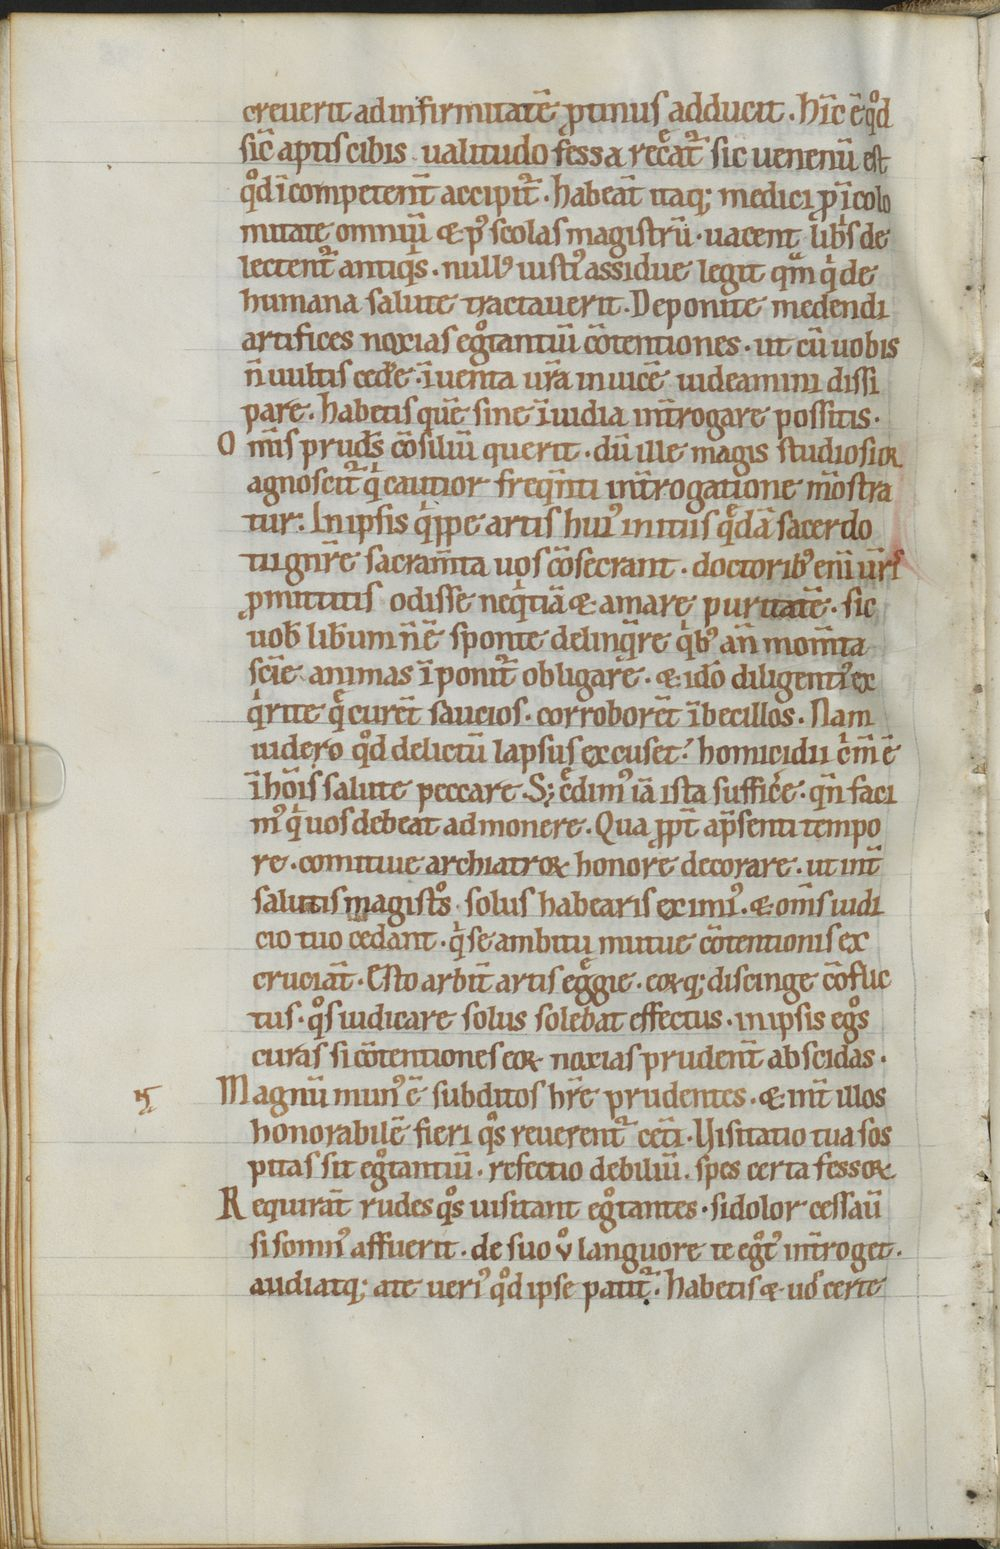 creuerit ad infirmitatē ꝓtinus adducit. hīc ē qͦd
sīc aptis cibis ualitudo fessa recͤat᷑ sic uenenū est
qͦd īcompetent̄ accipit᷑. habeāt itaq; medici ꝓ īcolo
mitate omniū & pꝰ scolas magistrū. uacent libͥs de
lectent᷑ antiqͥs. nullꝰ iustꝰ assidue legit qᷓm qͥ de
humana salute tractauerit. Deponite medendi
artifices noxias egͦtantiū cōtentiones. ut cū uobis
n̄ uultis cedere. īuenta ur̄a inuicē uideamini dissi
pare. habetis quē sine īuidia int̄rogare possitis.
Om̄is prudēs cōsiliū querit. dū ille magis studiosior
agnoscit᷑ qͥ cautior freq̄nti int̄rogatione mōstra
tur. In ipsis qͥppe artis huiꝰ initiis qͤdā sacerdo
tii gn̄re sacram̄ta uos cōsecrant. doctoribꝰ enī ur̄is
ꝓmittitis odisse neqͥtiā & amare puritatē. sic
uob̄ lib̄um n̄ ē sponte delinq̄re qͥbꝰ an̄ mom̄ta
scīe animas īponit᷑ obligare. & ido diligentiꝰ ex
qͥrite qͤ curēt saucios. corroborēt ībecillos. Nam
uidero qͦd delictū lapsus excuset. homicidii cͥm̄ ē
ī hōis salute peccare. S; cͤdimꝰ iā ista sufficͤe. qn̄ faci
mꝰ qͥ uos debeat admonere. Qua ꝓpt̄ a p̄senti tempo
re. comitiue archiatroꝝ honore decorare. ut int̄
salutis magistͦs solus habearis eximiꝰ. & om̄s iudi
cio tuo cedant. qͥ se ambitu mutue cōtentionis ex
cruciāt. Esto arbit̄ artis egͤgie. eoꝝq; discinge cōflic
tus. qͦs iudicare solus solebat effectus. in ipsis egͦs
curas si cōtentiones eoꝝ noxias prudent̄ abscidas.
Magnū munꝰ ē subditos hr̄e prudentes. & int̄ illos
honorabilē fieri qͦs reuerent᷑ cet̄i. Uisitatio tua sos
pitas sit egͦtantiū. refectio debiliū. spes certa fessoꝝ
Requirāt rudes qͦs uisitant egͦtantes. si dolor cessau̅
si somnꝰ affuerit. de suo vͦ languore te egͦtꝰ int̄roget.
audiatq; a te ueriꝰ qͦd ipse patit᷑. habetis & uos certe